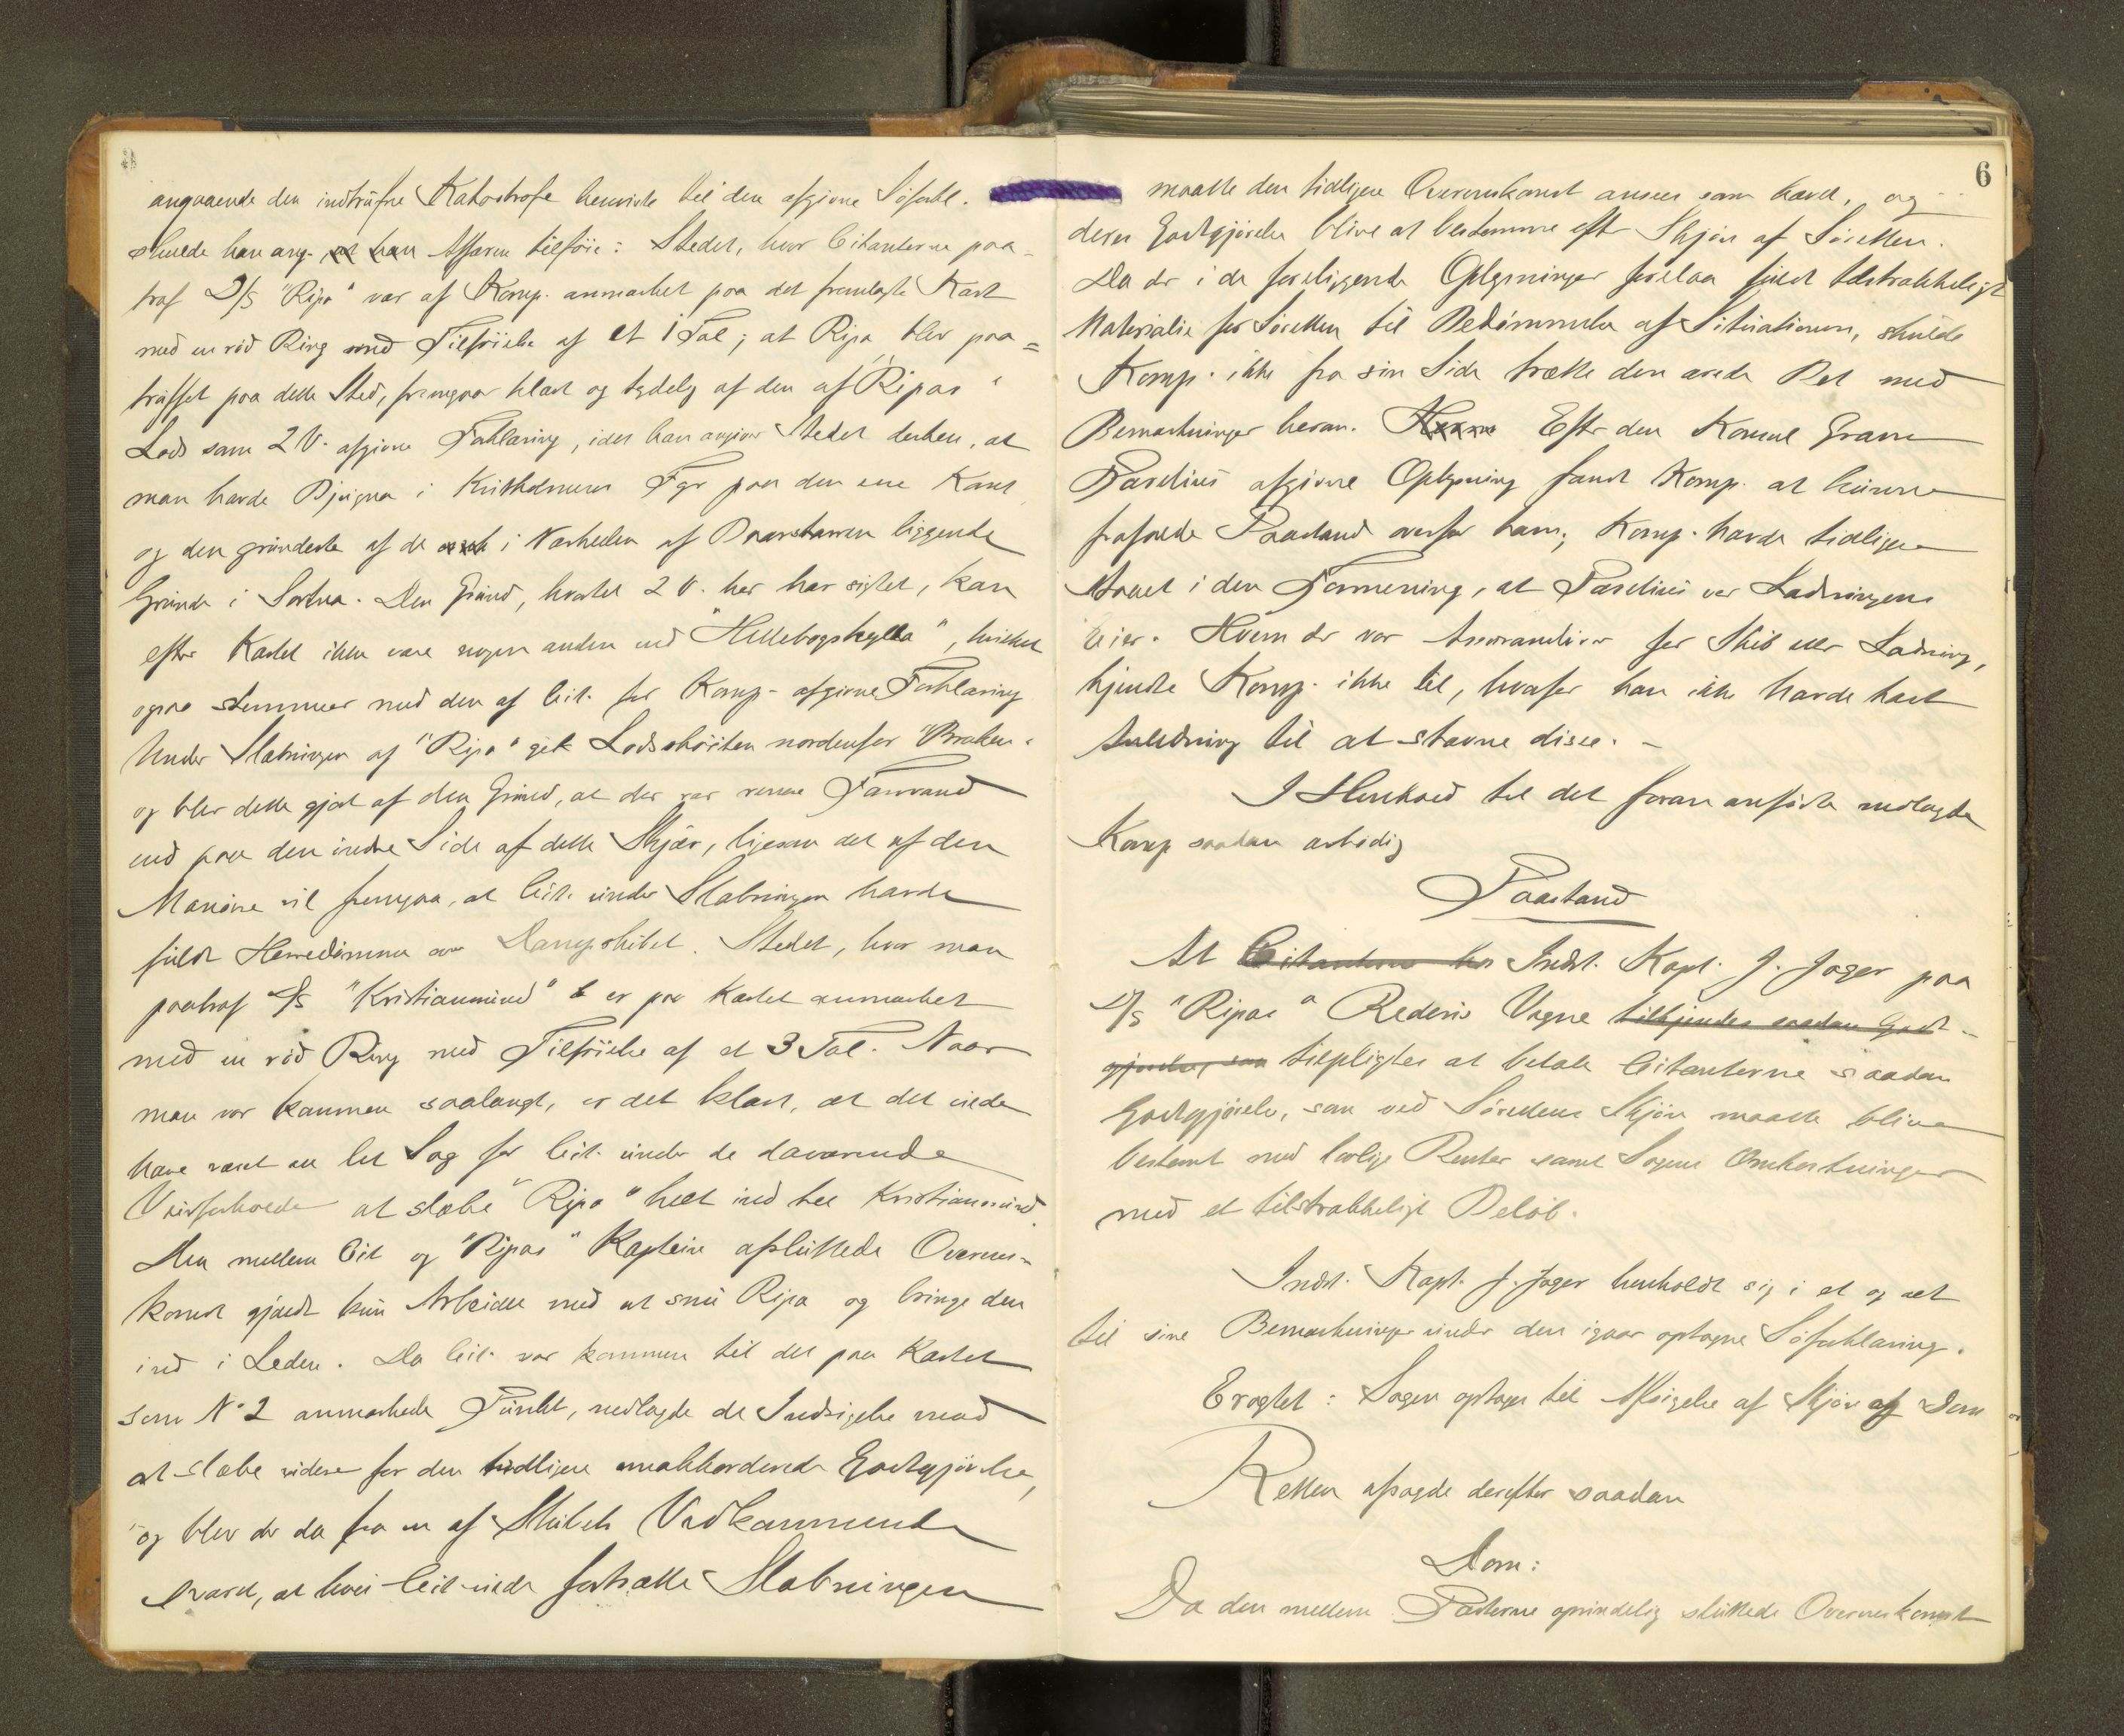 angaaende den indtrufne Katastrofe henviste til den afgivne Söforkl.
skulde han ang. Affæren tilföie: Stedet, hvor Citanterne paa-
traf D/S "Ripa" var af Komp. anmærket paa det fremlagte Kart
med en röd Ring med Tilföielse af et 1 Tal; at Ripa blev paa=
truffet paa dette Sted, fremgaar klart og tydelig af den af "Ripas"
Lods som 2 V. afgivne Forklaring, idet han angiver Stedet derhen, at
man havde Bjergna i Kvitholmens Fyr paa den ene Kant
og den grundeste af de i Nærheden af liggende
Grunde i Sortna. Den Grund, hvortil 2 V. her har sigtet, kan
efter Kartet ikke være nogen anden end "Hestebogskylla", hvilket
ogsaa stemmer med den af Cit. for Komp. afgivne Forklaring
Under Slæbningen af "Ripa" gik Lodssköiten nordenfor "Braken"
og blev dette gjort af den Grund, at der var renere Farvand
end paa den indre Side af dette Skjær, ligesom det af den
Manöver vil fremgaa, at Cit. under Slæbningen havde
fuldt Herredömme over Dampskibet. Stedet, hvor man
paatraf D/S "Kristiansund" er paa Kartet anmærket
med en röd Ring med Tilföielse af et 3 Tal. Naar
man var kommen saalangt, er det klart, at det vilde
have været en let Sag for Cit. under de daværende
Veirforholde at slæbe "Ripa" helt ind til Kristianssund.
Den mellem Cit og "Ripas" Kaptein afsluttede Overens-
komst gjaldt kun Arbeidet med at snu Ripa og bringe den
ind i Leden. Da Cit. var kommen til det paa Kartet
som No 2 anmærkede Punkt, nedlagde de Indsigelse mod
at slæbe videre for den tidligere akkorderede Godtgjörelse,
og blev der da fra en af Skibets Vedkommende
svaret, at hvis Cit vilde fortsætte Slæbningen
6
maatte den tidligere Overenskomst ansees som hævet, og
deres Godtgjörelse blive at bestemme efter Skjön af Söretten.
Da der i de foreliggende Oplysninger forelaa fuldt tilstrækkeligt
Materiale for Söretten til Bedömmelse af Situationen, skulde
Komp. ikke fra sin Side trætte den ærede Ret med
Bemærkninger herom. Efter den Konsul Gram
Parelius afgivne Oplysning fandt Komp. at kunne
frafalde Paastand overfor ham; Komp. havde tidligere
staaet i den Formening, at Parelius var Ladningens
Eier. Hvem der var Assurandörer for Skib eller Ladning,
kjendte Komp. ikke til, hvorfor han ikke havde havt
Anledning til at stævne disse. -
I Henhold til det foran anförte nedlagde
Komp saadan ærbödig
Paastand
At Citanterne hos Indst. Kapt. J. Jager paa
D/S "Ripas" Rederis Vegne tilkjendes saadan Godt-
gjörelse, som tilpligtes at betale Citanterne saadan
Godtgjörelse, som ved Sörettens Skjön maatte blive
bestemt med lovlige Renter samt Sagens Omkostninger
med et tilstrækkeligt Belöb.
Indst. Kapt. J. Jager henholdt sig i et og alt
til sine Bemærkninger under den igaar optagne Söforklaring.
Eragtet: Sagen optages til Afsigelse af Skjön og Dom
Retten afsagde derefter saadan
Dom:
Da den mellem Parterne oprindelig sluttede Overenskomst